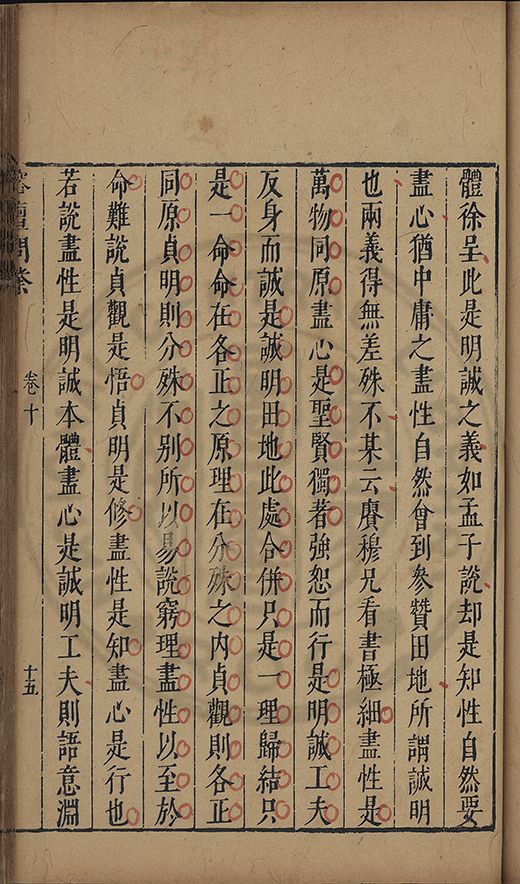 體徐呈此是明誠之義如孟子說却是知性自然要
盡心猶中庸之盡性自然會到參贊田地所謂誠明
也兩義得無差殊不某云賡穆兄看書極細盡性是
萬物同原盡心是聖賢獨著強恕而行是明誠工夫
反身而誠是誠明田地此處合併只是一理歸結只
是一命命在各正之原理在分殊之內貞觀則各正
同原貞明則分殊不別所以易說窮理盡性以至於
命難說貞觀是悟貞明是修盡性是知盡心是行也
若說盡性是明誠本體盡心是誠明工夫則語意淵
榕壇問業
卷十
十五